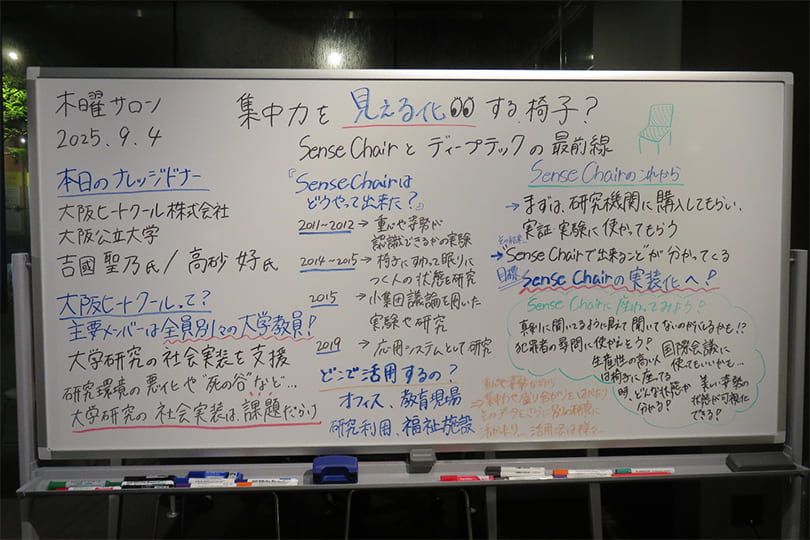 木曜サロン
2025.9.4
集中力を見える化する椅子?
Sense Chair と ディープテックの最前線
本日のナレッジドナー
大阪ヒートクール株式会社
大阪公立大学
吉國聖乃氏/高砂好氏
大阪ヒートクールって?
主要メンバーは全員別々の大学教員!
大学研究の社会実装を支援
研究環境の悪化や"死の谷"など…
大学研究の社会実装は、課題だらけ
『SenseChairは
どうやって出来た?』
2011~2012 → 重心や姿勢が
認識できるかの実験
2014~2015 → 椅子にすわって眠りに
つく人の状態を研究
2015 → 小集団議論を用いた
実験や研究
2019 → 応用システムとして研究
どこで活用するの?
オフィス、教育現場
研究利用、福祉施設
→ 集中力や盛り合がりをはかり
そのデータをさらに別の研究に
活用法は様々…
Sense Chairのこれから
→まずは、研究機関に購入してもらい、
実証・実験に使かってもらう
その結果
→"Sense Chairで出来ること"が分かってくる
目標 Sense Chairの実装化へ!
Sense Chairに座わってみよう?
真剣に聞いてるように見えて聞いてないのがバレるかも!?
犯罪者の尋問に使かえそう?
国際会議に
使てもいいかも…
生産性の高い人
は椅子に座ってる
時、どんな状態か
分かる?
美しい姿勢の
状態が可視化
できる?